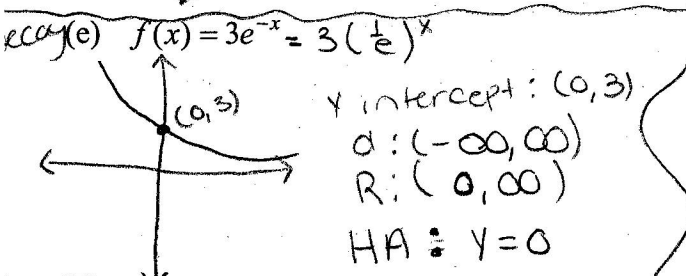 ecay(e) f(x) = 3e^{-x} = 3(1/e)^x
(0,3)
y intercept: (0,3)
d: (-∞,∞)
R: (0,∞)
HA: y=0